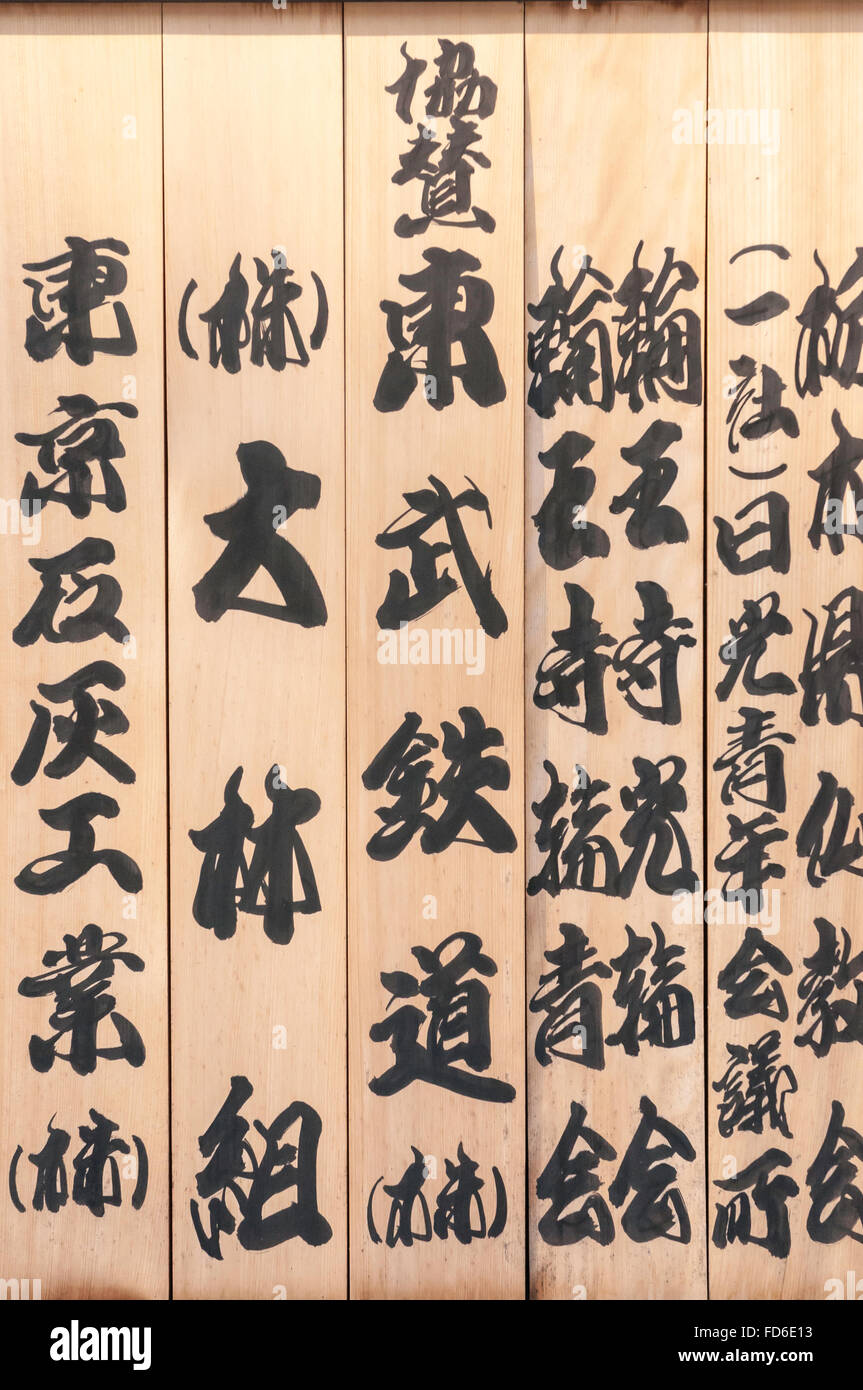 栃木県仏教会
(一社)日光青年会議所
輪王寺光輪会
輪王寺輪青会
協賛
東武鉄道(株)
(株)大林組
東京石灰工業(株)
alamy stock photo
FD6E13
www.alamy.com